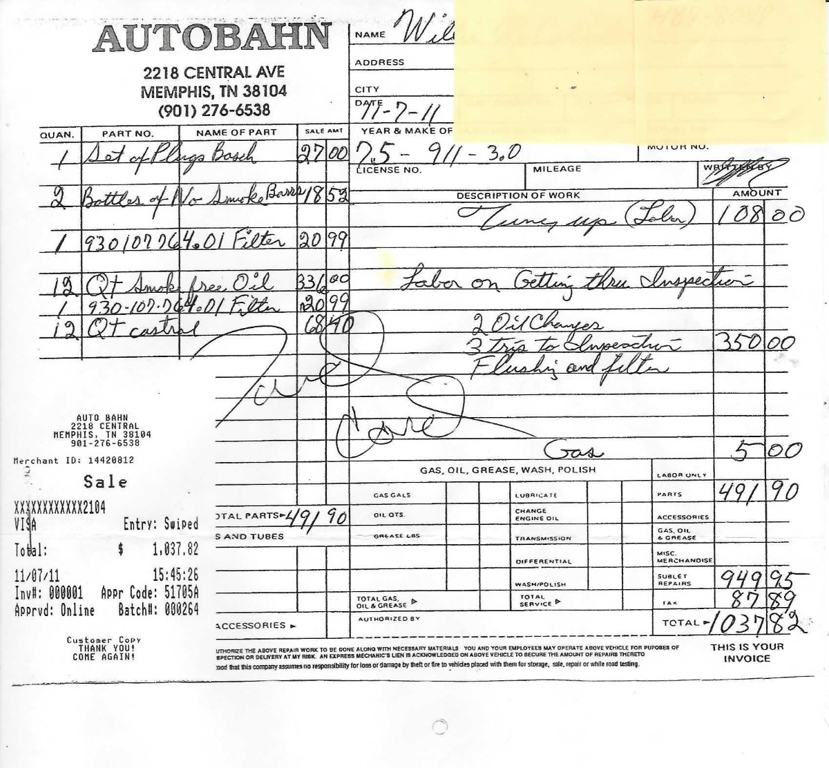 AUTOBAHN
2218 CENTRAL AVE
MEMPHIS, TN 38104
(901) 276-6538
NAME
ADDRESS
CITY
DATE 11-7-11
YEAR & MAKE OF
75 - 911 - 3.0
MOTOR NO.
LICENSE NO. MILEAGE WRITTEN BY
QUAN. PART NO. NAME OF PART SALE AMT
1 Set of Plugs Bosch 27 00
2 Bottles of No Smoke Bars 18 52
1 930107764.01 Filter 20 99
12 Qt Smoke free Oil 336 00
1 930-107-764.01 Filter 20 99
12 Qt castrol 68 40
DESCRIPTION OF WORK AMOUNT
Tune up (Labor) 108 00
Labor on Getting thru Inspection
2 Oil Changes
3 trip to Inspection 350 00
Flushing and filter
Gas 5 00
AUTO BAHN
2218 CENTRAL
MEMPHIS, TN 38104
901-276-6538
Merchant ID: 14420812
Sale
XXXXXXXXXXXX2104
VISA Entry: Swiped
Total: $ 1,037.82
11/07/11 15:45:26
Inv#: 000001 Appr Code: 51705A
Apprvd: Online Batch#: 000264
Customer Copy
THANK YOU!
COME AGAIN!
OTAL PARTS 491 90
S AND TUBES
ACCESSORIES
GAS, OIL, GREASE, WASH, POLISH
GAS GALS LUBRICATE
OIL QTS. CHANGE ENGINE OIL
GREASE LBS TRANSMISSION
DIFFERENTIAL
WASH/POLISH
TOTAL GAS, OIL & GREASE TOTAL SERVICE
AUTHORIZED BY
LABOR ONLY
PARTS 491 90
ACCESSORIES
GAS, OIL & GREASE
MISC. MERCHANDISE
SUBLET REPAIRS 949 95
TAX 87 89
TOTAL 1037 82
THIS IS YOUR
INVOICE
UTHORIZE THE ABOVE REPAIR WORK TO BE DONE ALONG WITH NECESSARY MATERIALS. YOU AND YOUR EMPLOYEES MAY OPERATE ABOVE VEHICLE FOR PUPOSES OF
SPECTION OR DELIVERY AT MY RISK. AN EXPRESS MECHANIC'S LIEN IS ACKNOWLEDGED ON ABOVE VEHICLE TO SECURE THE AMOUNT OF REPAIRS THERETO
ood that this company assumes no responsibility for loss or damage by theft or fire to vehicles placed with them for storage, sale, repair or while road testing.